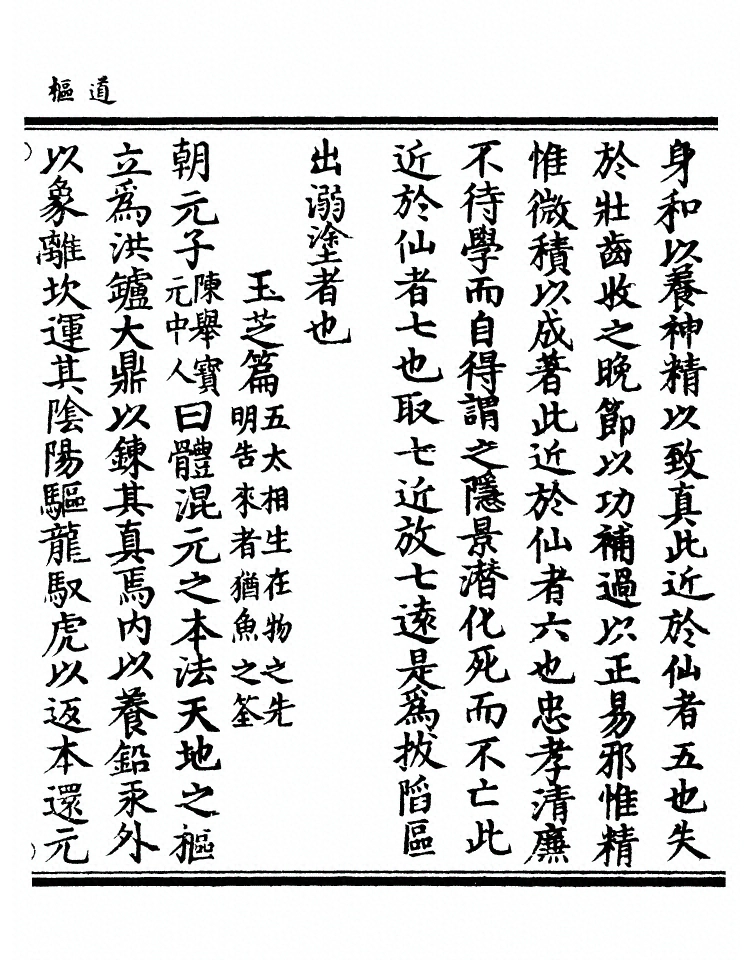 道樞
身和以養神精以致真此近於仙者五也失
於壯齒收之晚節以功補過以正易邪惟精
惟微積以成著此近於仙者六也忠孝清廉
不待學而自得謂之隱景潛化死而不亡此
近於仙者七也取七近放七遠是爲拔陷區
出溺塗者也
玉芝篇五太相生在物之先
明告來者猶魚之筌
朝元子陳舉寶
元中人曰體混元之本法天地之樞
立爲洪鑪大鼎以鍊其真焉內以養鉛汞外
以象離坎運其陰陽驅龍馭虎以返本還元